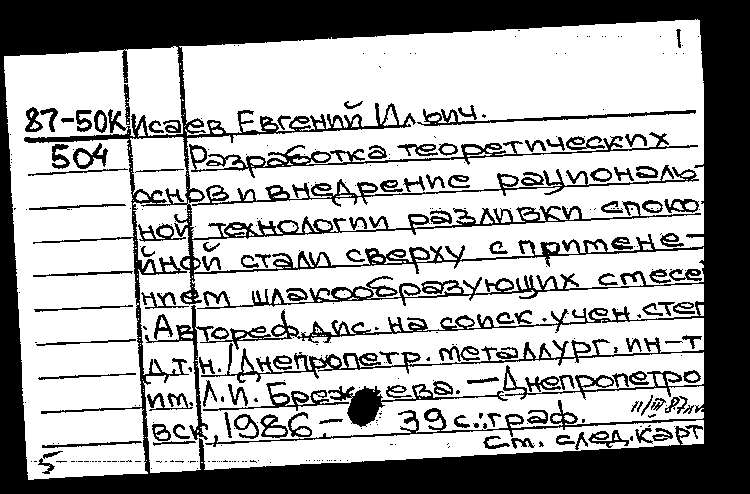 1
87-50К Исаев, Евгений Ильич.
504 Разработка теоретических
основ и внедрение рациональ-
ной технологии разливки споко
йной стали сверху с примене-
нием шлакообразующих смесей
:Автореф.дис. на соиск.учен.степ
д.т.н./Днепропетр.металлург.ин-т
им.Л.И.Брежнева.—Днепропетро
вск,1986.- 39с.:граф.
ст. след.карт
5